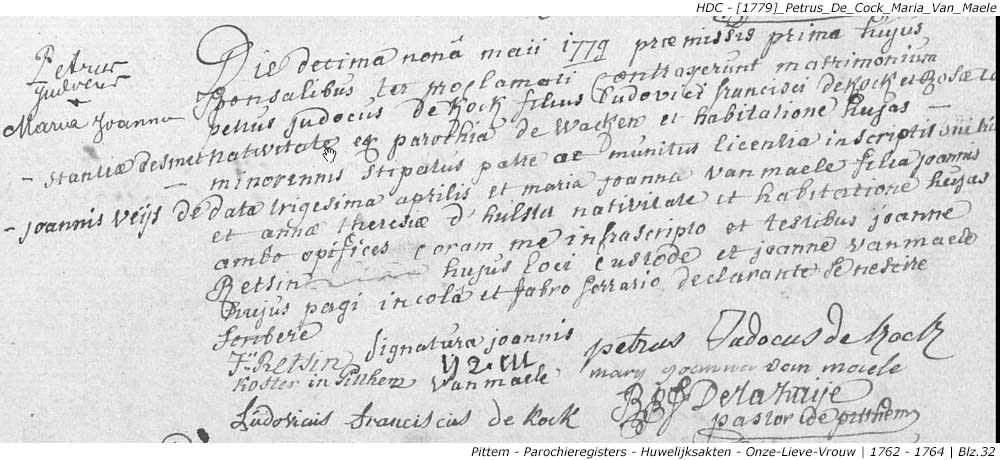 HDC - [1779]_Petrus_De_Cock_Maria_Van_Maele
Petrus
Maria Joanna
Die decima nonâ maii 1779 præmissis prima hujus
sponsalibus ter proclamati Contraxerunt matrimonium
petrus judocus de Kock filius Ludovici francisci de Kock et Rosæ
- stantiæ desmet nativitate ex parochia de Wacken et habitatione hujas -
minorennis stipatus patre ac munitus licentia inscriptis
- joannis veijs de data trigesima aprilis et maria joanna van maele filia joannis
et annæ theresiæ d'hulsta nativitate et habitatione hujas
ambo opifices coram me infrascripto et testibus joanne
Retsin hujus loci custode et joanne van maele
hujus pagi incolâ et fabro ferrario declarante se nescire
scribere
Js Retsin signatura joannis
koster in pitthem van maele
petrus Judocus de Kock
mary joanna van maele
Ludovicus franciscus de Kock
De la haije
pastor de pitthem
Pittem - Parochieregisters - Huwelijksakten - Onze-Lieve-Vrouw | 1762 - 1764 | Blz.32